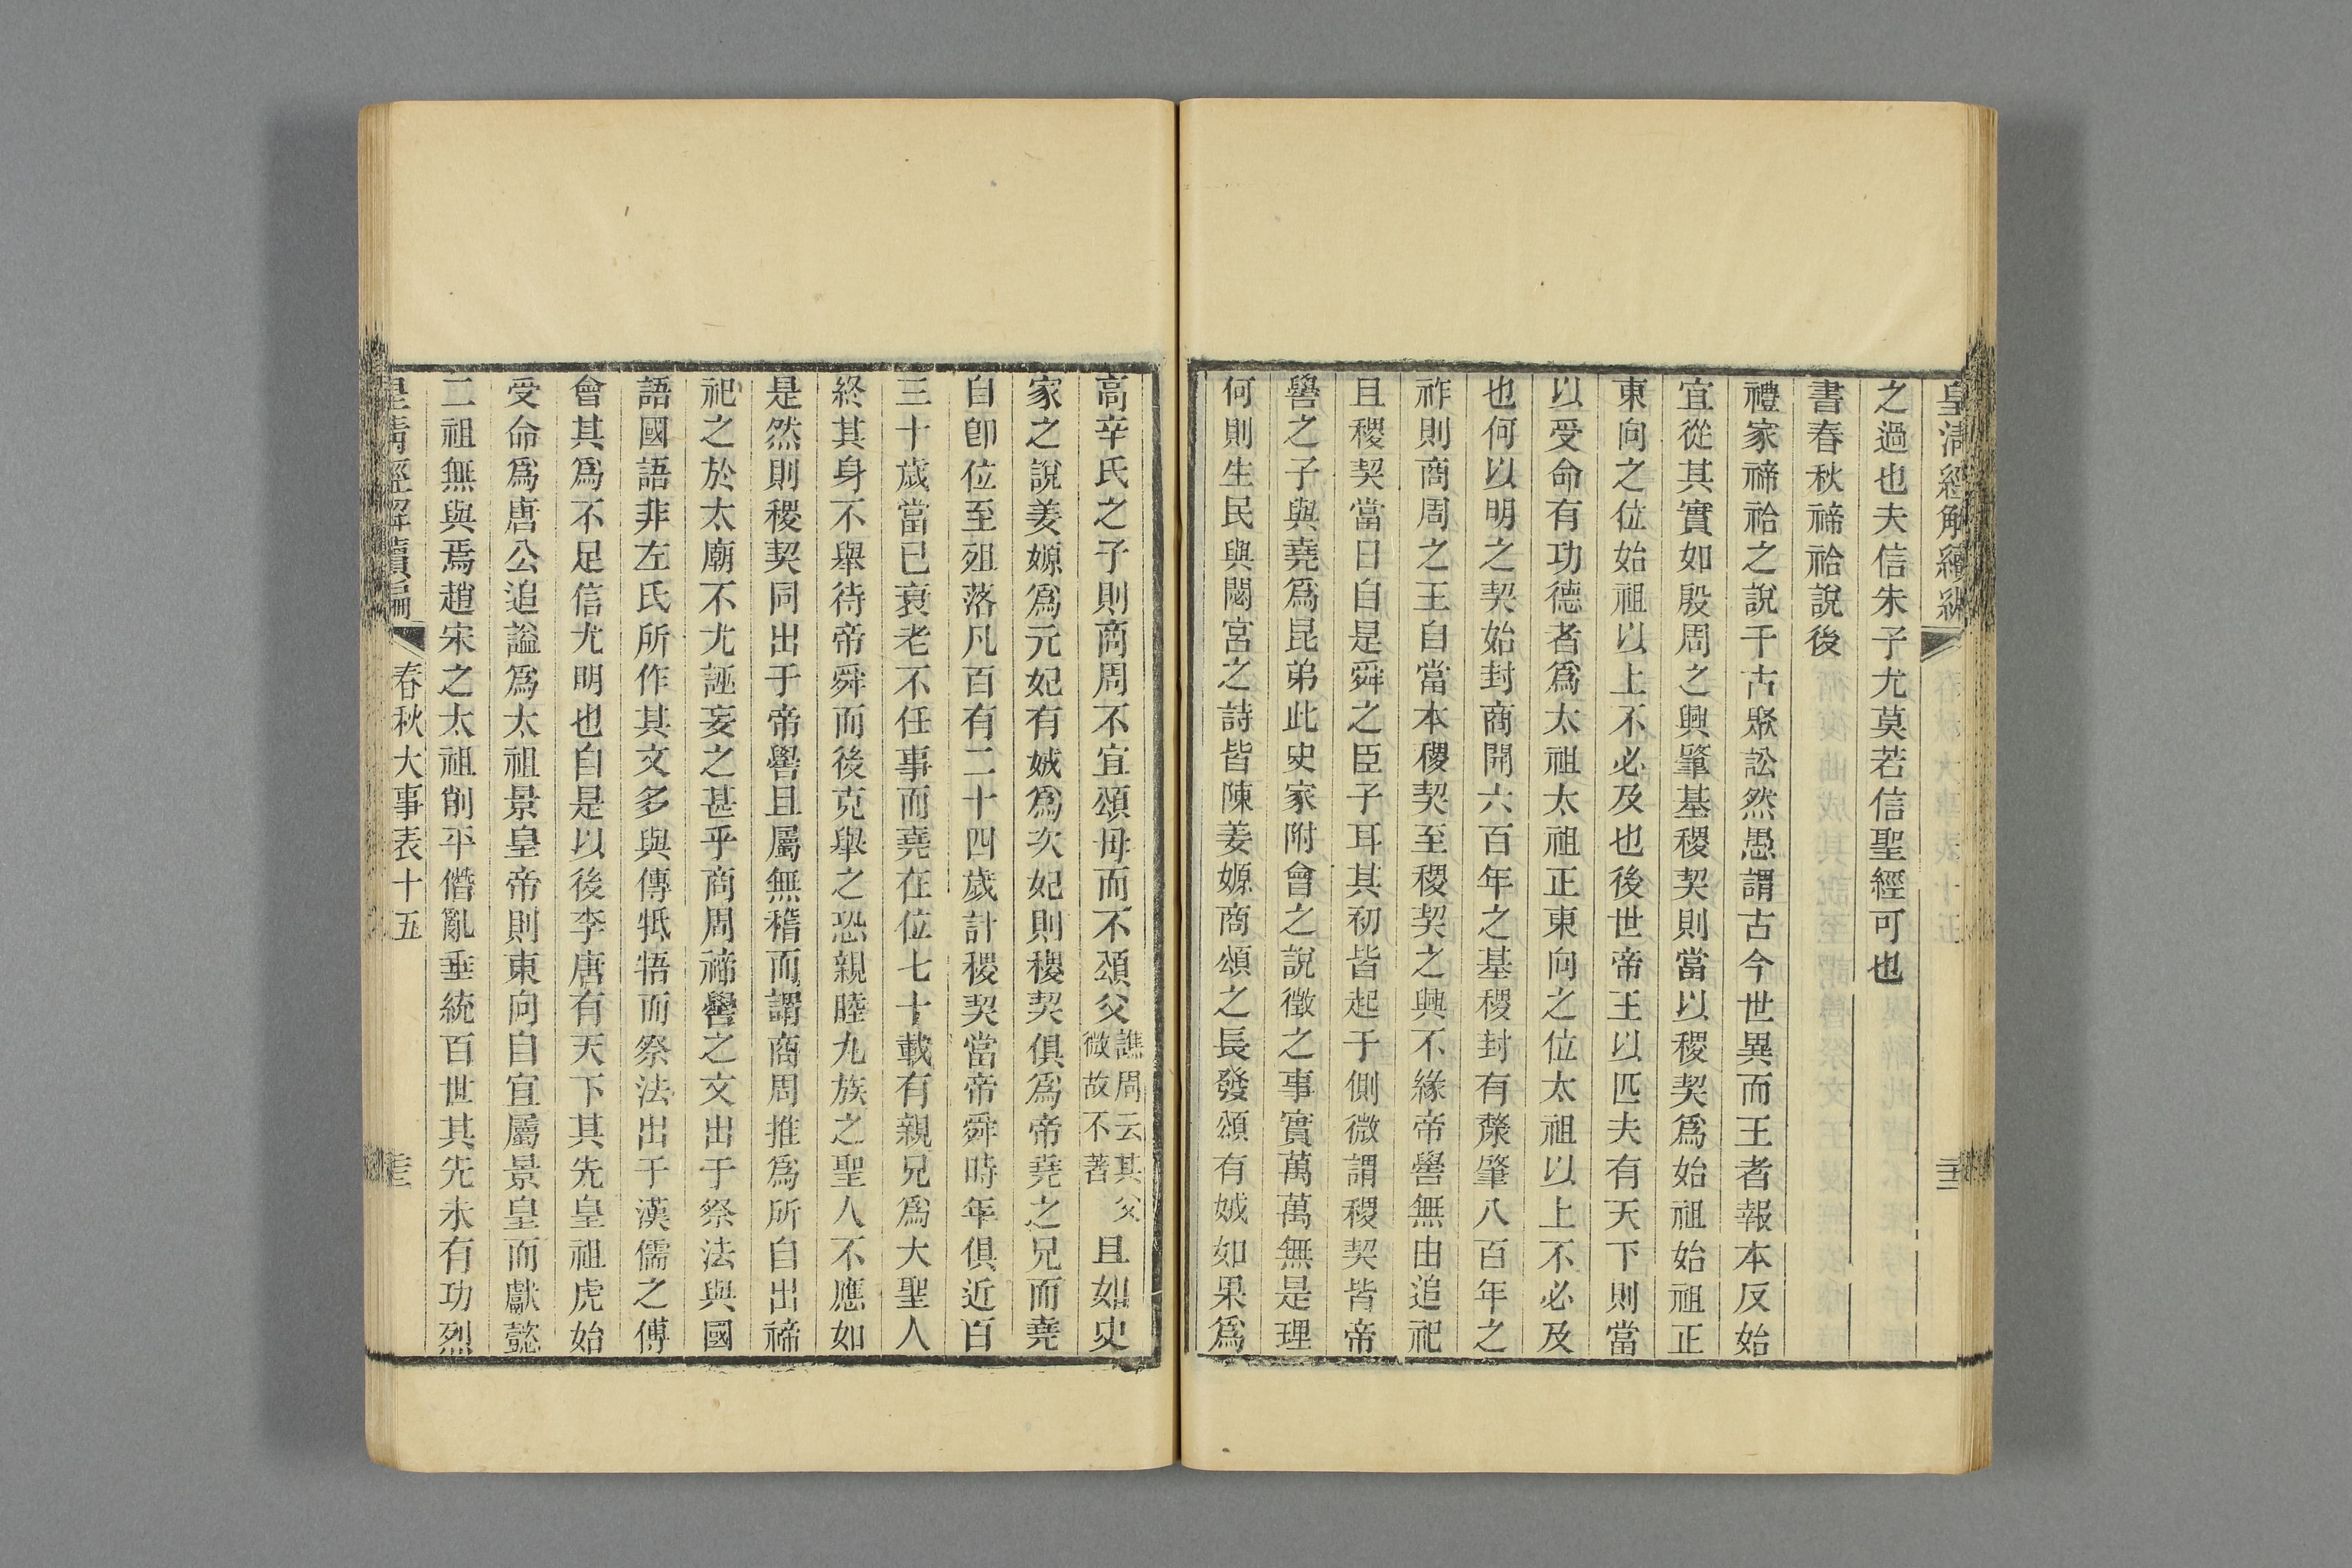 皇清經解續編
之過也夫信朱子尤莫若信聖經可也
書春秋禘祫說後
禮家禘祫之說千古聚訟然愚謂古今世異而王者報本反始
宜從其實如殷周之興肇基稷契則當以稷契爲始祖始祖正
東向之位始祖以上不必及也後世帝王以匹夫有天下則當
以受命有功德者爲太祖太祖正東向之位太祖以上不必及
也何以明之契始封商開六百年之基稷封有漦肇八百年之
祚則商周之王自當本稷契至稷契之興不緣帝嚳無由追祀
且稷契當日自是舜之臣子耳其初皆起于側微謂稷契皆帝
嚳之子與堯爲昆弟此史家附會之說徵之事實萬萬無是理
何則生民與閟宮之詩皆陳姜嫄商頌之長發頌有娀如果爲
高辛氏之子則商周不宜頌母而不頌父譙周云其父微故不著且如史
家之說姜嫄爲元妃有娀爲次妃則稷契俱爲帝堯之兄而堯
自卽位至殂落凡百有二十四歲計稷契當帝舜時年俱近百
三十歲當已衰老不任事而堯在位七十載有親兄爲大聖人
終其身不舉待帝舜而後克舉之恐親睦九族之聖人不應如
是然則稷契同出于帝嚳且屬無稽而謂商周推爲所自出禘
祀之於太廟不尤誣妄之甚乎商周禘嚳之文出于祭法與國
語國語非左氏所作其文多與傳牴牾而祭法出于漢儒之傅
會其爲不足信尤明也自是以後李唐有天下其先皇祖虎始
受命爲唐公追謚爲太祖景皇帝則東向自宜屬景皇而獻懿
二祖無與焉趙宋之太祖削平僭亂垂統百世其先未有功烈
皇清經解續編
春秋大事表十五